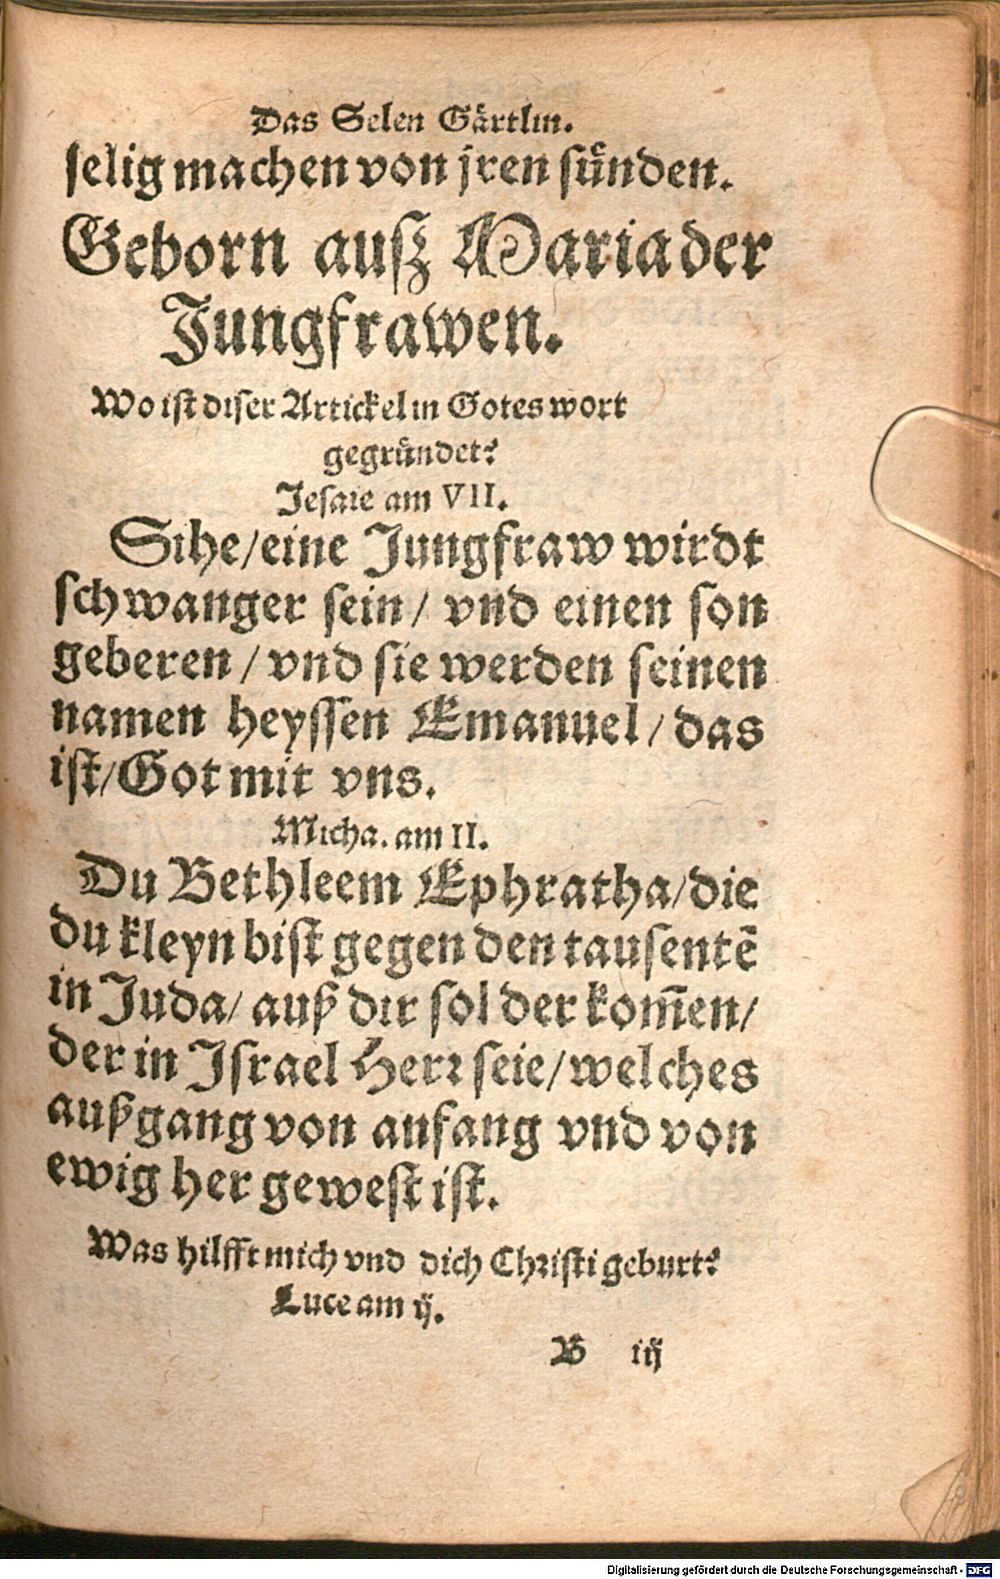 Das Selen Gärtlin.
selig machen von jren sünden.
Geborn ausz Maria der
Jungfrawen.
Wo ist diser Artickel in Gotes wort
gegründet?
Jesaie am VII.
Sihe/eine Jungfraw wirdt
schwanger sein/ vnd einen son
geberen/ vnd sie werden seinen
namen heyssen Emanuel/ das
ist/Got mit vns.
Micha. am II.
Du Bethleem Ephratha/die
du kleyn bist gegen den tausentē
in Juda/ auß dir sol der kom̄en/
der in Israel Herr seie/welches
außgang von anfang vnd von
ewig her gewest ist.
Was hilfft mich vnd dich Christi geburt?
Luce am ij.
B iij
Digitalisierung gefördert durch die Deutsche Forschungsgemeinschaft - DFG